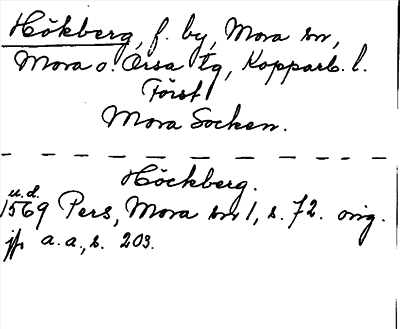 Hökberg, f. by, Mora sn,
Mora o. Orsa tg, Kopparb. l.
Först
Mora Socken.
Höckberg.
u.d.
1569 Pers, Mora sn 1, s. 72. orig.
jfr a.a., s. 203.